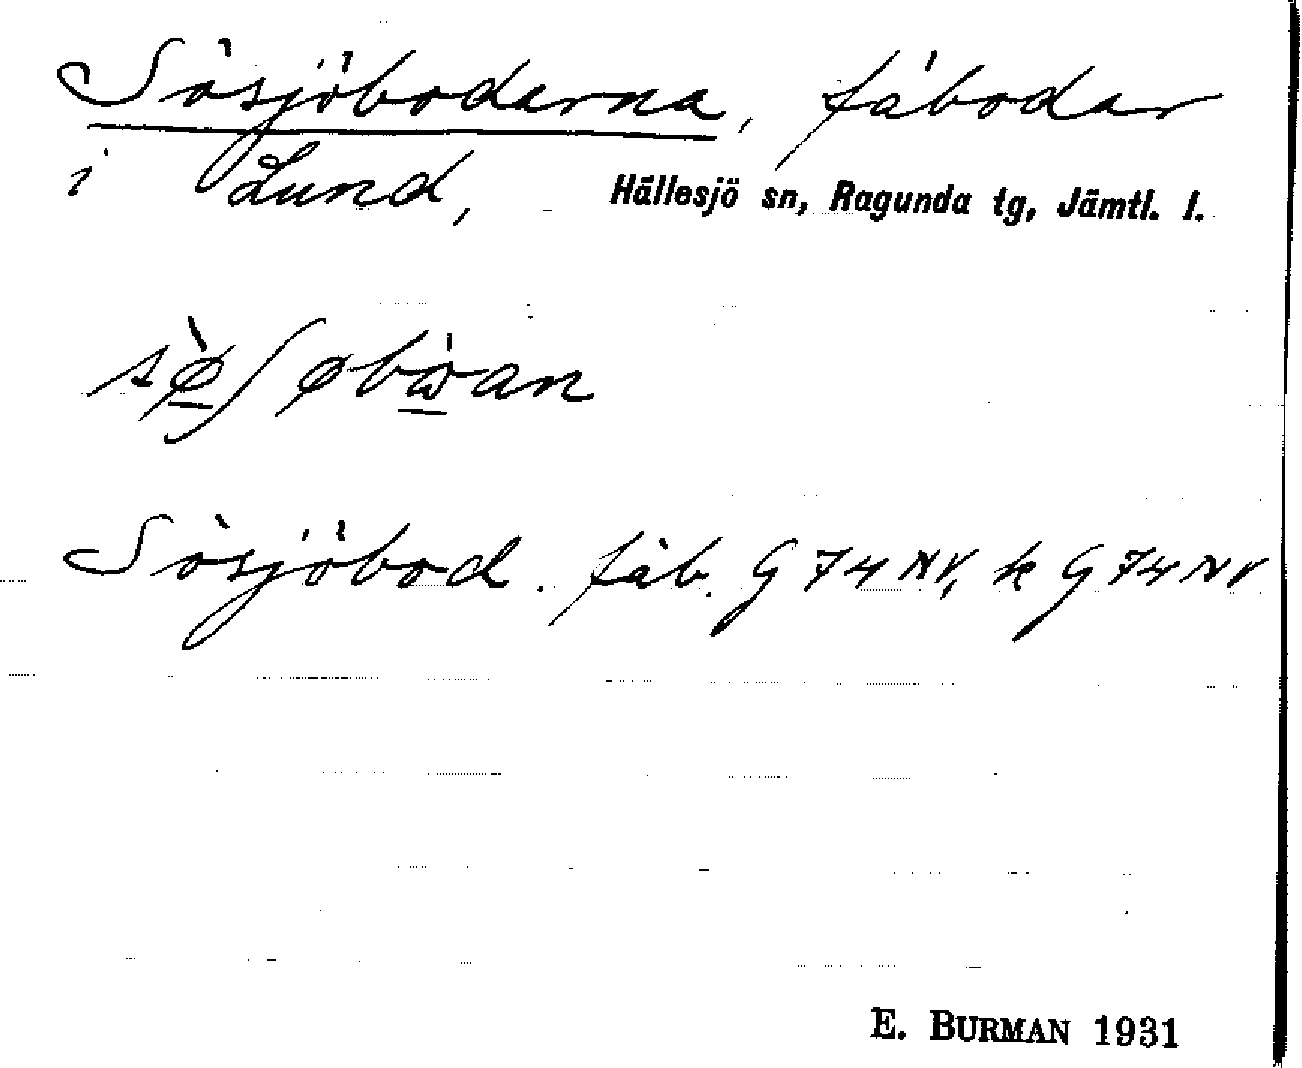 Sösjöbodarna, fäbodar
i Lund, Hällesjö sn, Ragunda tg, Jämtl. l.
sø̀ʃøbὼan
Sösjöbod. fäb. G 74 NV, k G 74 NV
E. BURMAN 1931